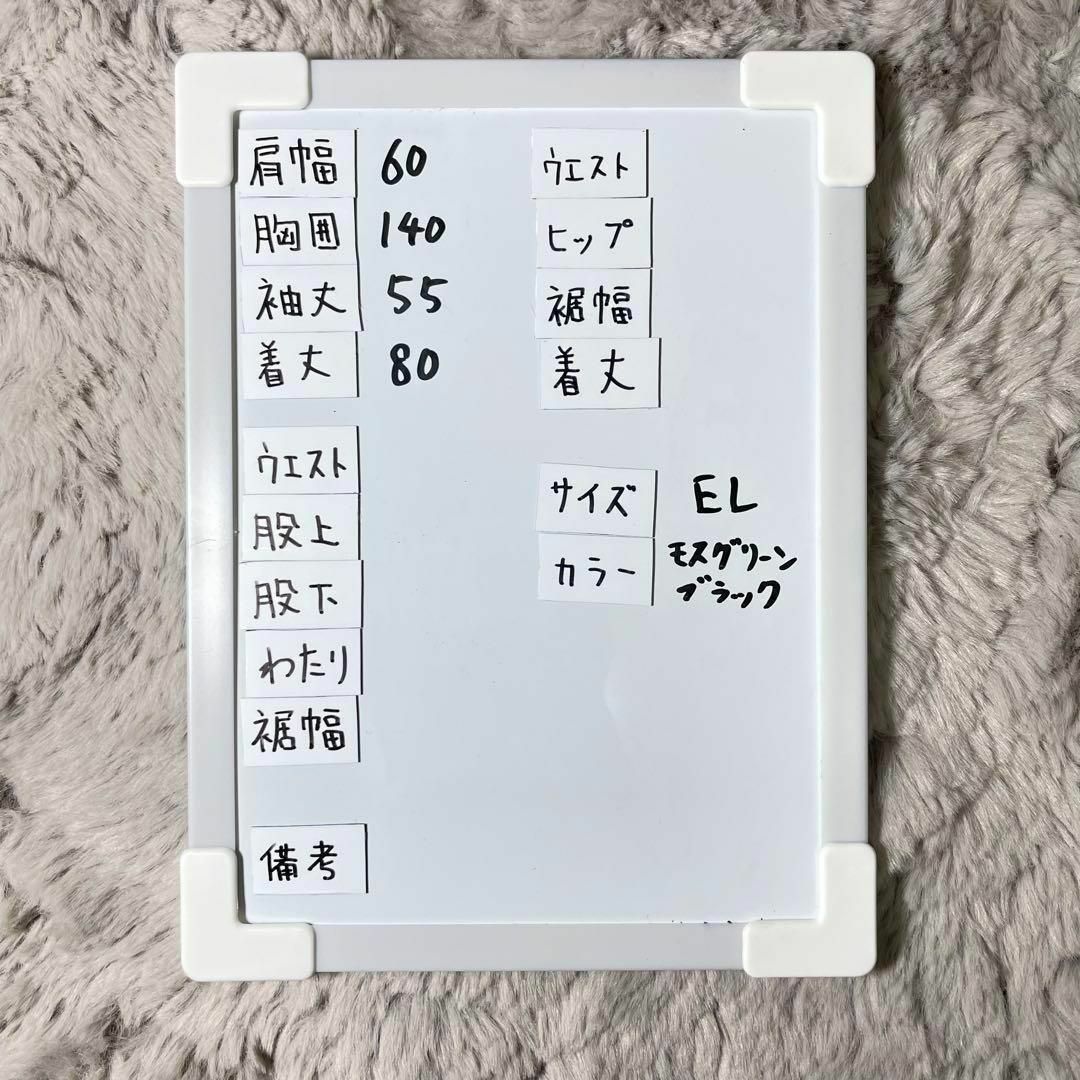 肩幅 60
胸囲 140
袖丈 55
着丈 80
ウエスト
股上
股下
わたり
裾幅
備考
ウエスト
ヒップ
裾幅
着丈
サイズ EL
カラー モスグリーン
ブラック